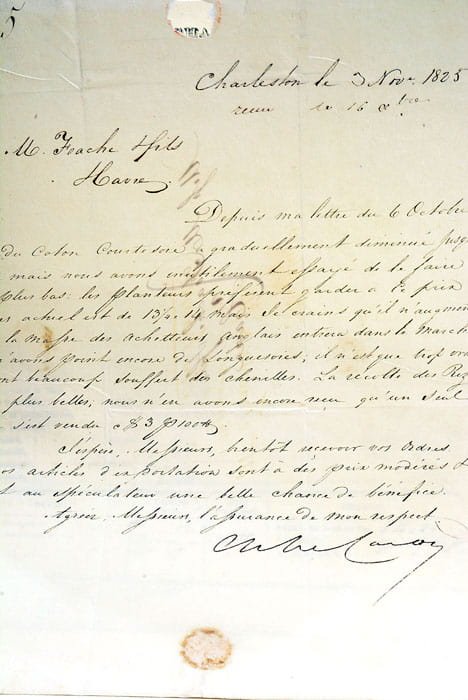 5
Charleston le 3 Nov. 1825
recue le 16 Xbre
M. Foache & fils
Havre
Depuis ma lettre du 6 Octobre
du Coton Courtesoie a graduellement diminué jusq
mais nous avons inutilement essayé de le faire
plus bas: les planteurs préferent garder à ce prix
actuel est de 13½ 14 mais je crains qu'il n'augmen
la masse des achetteurs anglais entrera dans le march
n'avons point encore des Longuesoies; il n'est que trop vra
beaucoup souffert des chenilles. La récolte des Riz
plus belles, nous n'en avons encore reçu qu'un seul
s'est vendu $3 P 100#.
J'espère, Messieurs, bientot recevoir vos Ordres.
os articles d'exportation sont à des prix modérés
t au spéculateur une belle chance de bénéfice.
Agréez, Messieurs, l'assurance de mon respect.